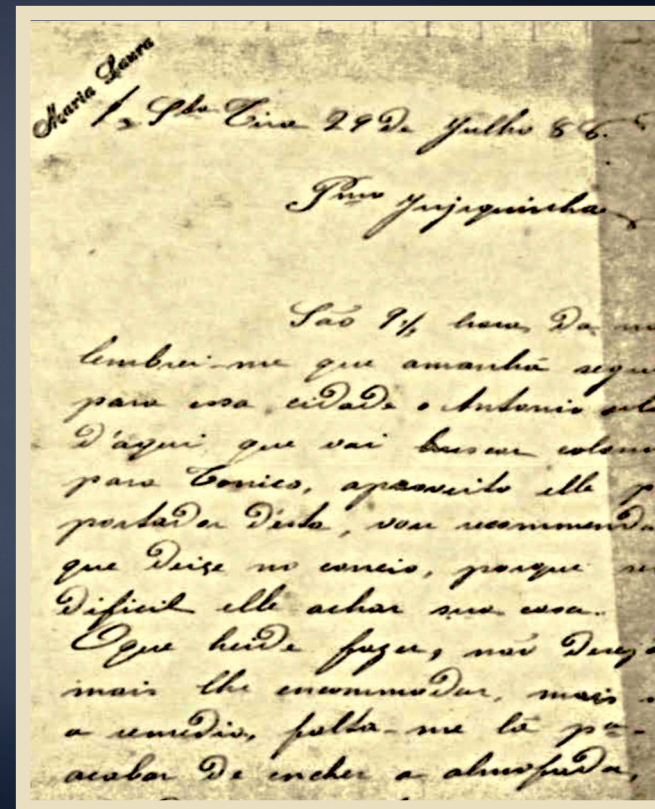 Maria Laura
Sta 29 de Julho 86.
Pmo Jujiquinha
São 9½ horas da
lembrei-me que amanhã
para essa cidade o Antonio
d'aqui que vai buscar
para Tonico, aproveito elle
portador désta, vou
que deixe no correio, porque
dificil elle achar sua casa.
O que heide fazer, não
mais lhe encommodar, mais
o remedio, falta-me lã pa
acabar de encher a almofada,